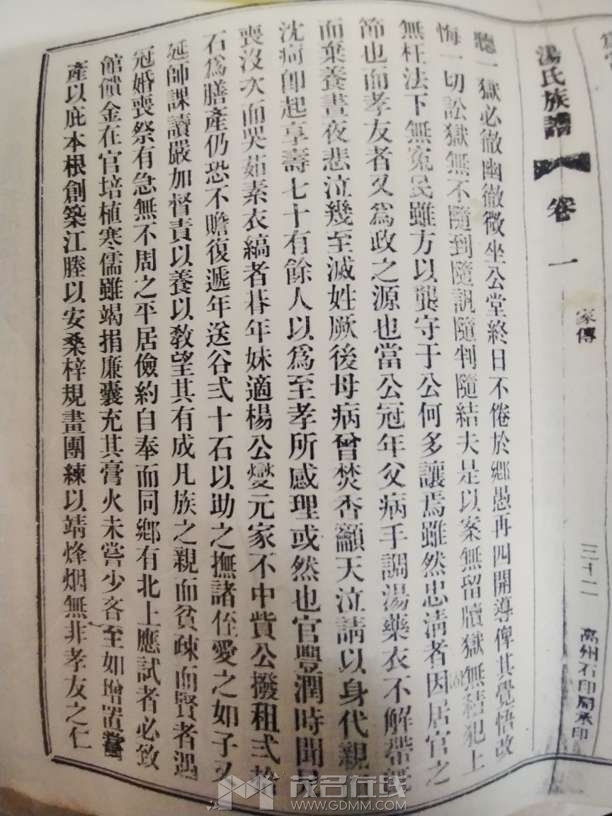 湯氏族譜 卷一 家傳 三十二 高州石印局承印
聽一獄必徹幽徹微坐公堂終日不倦於鄉愚再四開導俾其覺悟改
悔一切訟獄無不隨到隨訊隨判隨結夫是以案無留牘獄無結犯上
無枉法下無冤民雖方以龔守于公何多讓焉雖然忠淸者因居官之
節也而孝友者又爲政之源也當公冠年父病手調湯藥衣不解帶
而棄養晝夜悲泣幾至滅姓厥後母病曾焚香籲天泣請以身代親
沈疴卽起享壽七十有餘人以爲至孝所感理或然也官豐潤時聞
喪沒次而哭茹素衣縞者朞年妹適楊公燮元家不中貲公撥租弍拾
石爲膳產仍恐不贍復遞年送谷弍十石以助之撫諸侄愛之如子又
延師課讀嚴加督責以養以敎望其有成凡族之親而貧疎而賢者遇
冠婚喪祭有急無不周之平居儉約自奉而同鄉有北上應試者必致
館饋金在官培植寒儒雖竭捐廉囊充其膏火未嘗少吝至如增置嘗
產以庇本根創築江塍以安桑梓規畫團練以靖烽烟無非孝友之仁
茂名在线
WWW.GDMM.COM